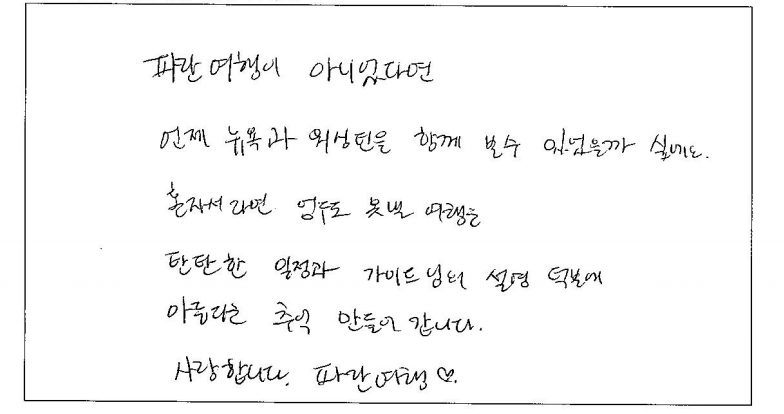 파란여행이 아니었다면
언제 뉴욕과 워싱턴을 함께 볼수 있었을까 싶네요.
혼자서라면 엄두도 못낼 여행을
탄탄한 일정과 가이드님의 설명 덕분에
아름다운 추억 만들어 갑니다.
사랑합니다. 파란여행 ♡.